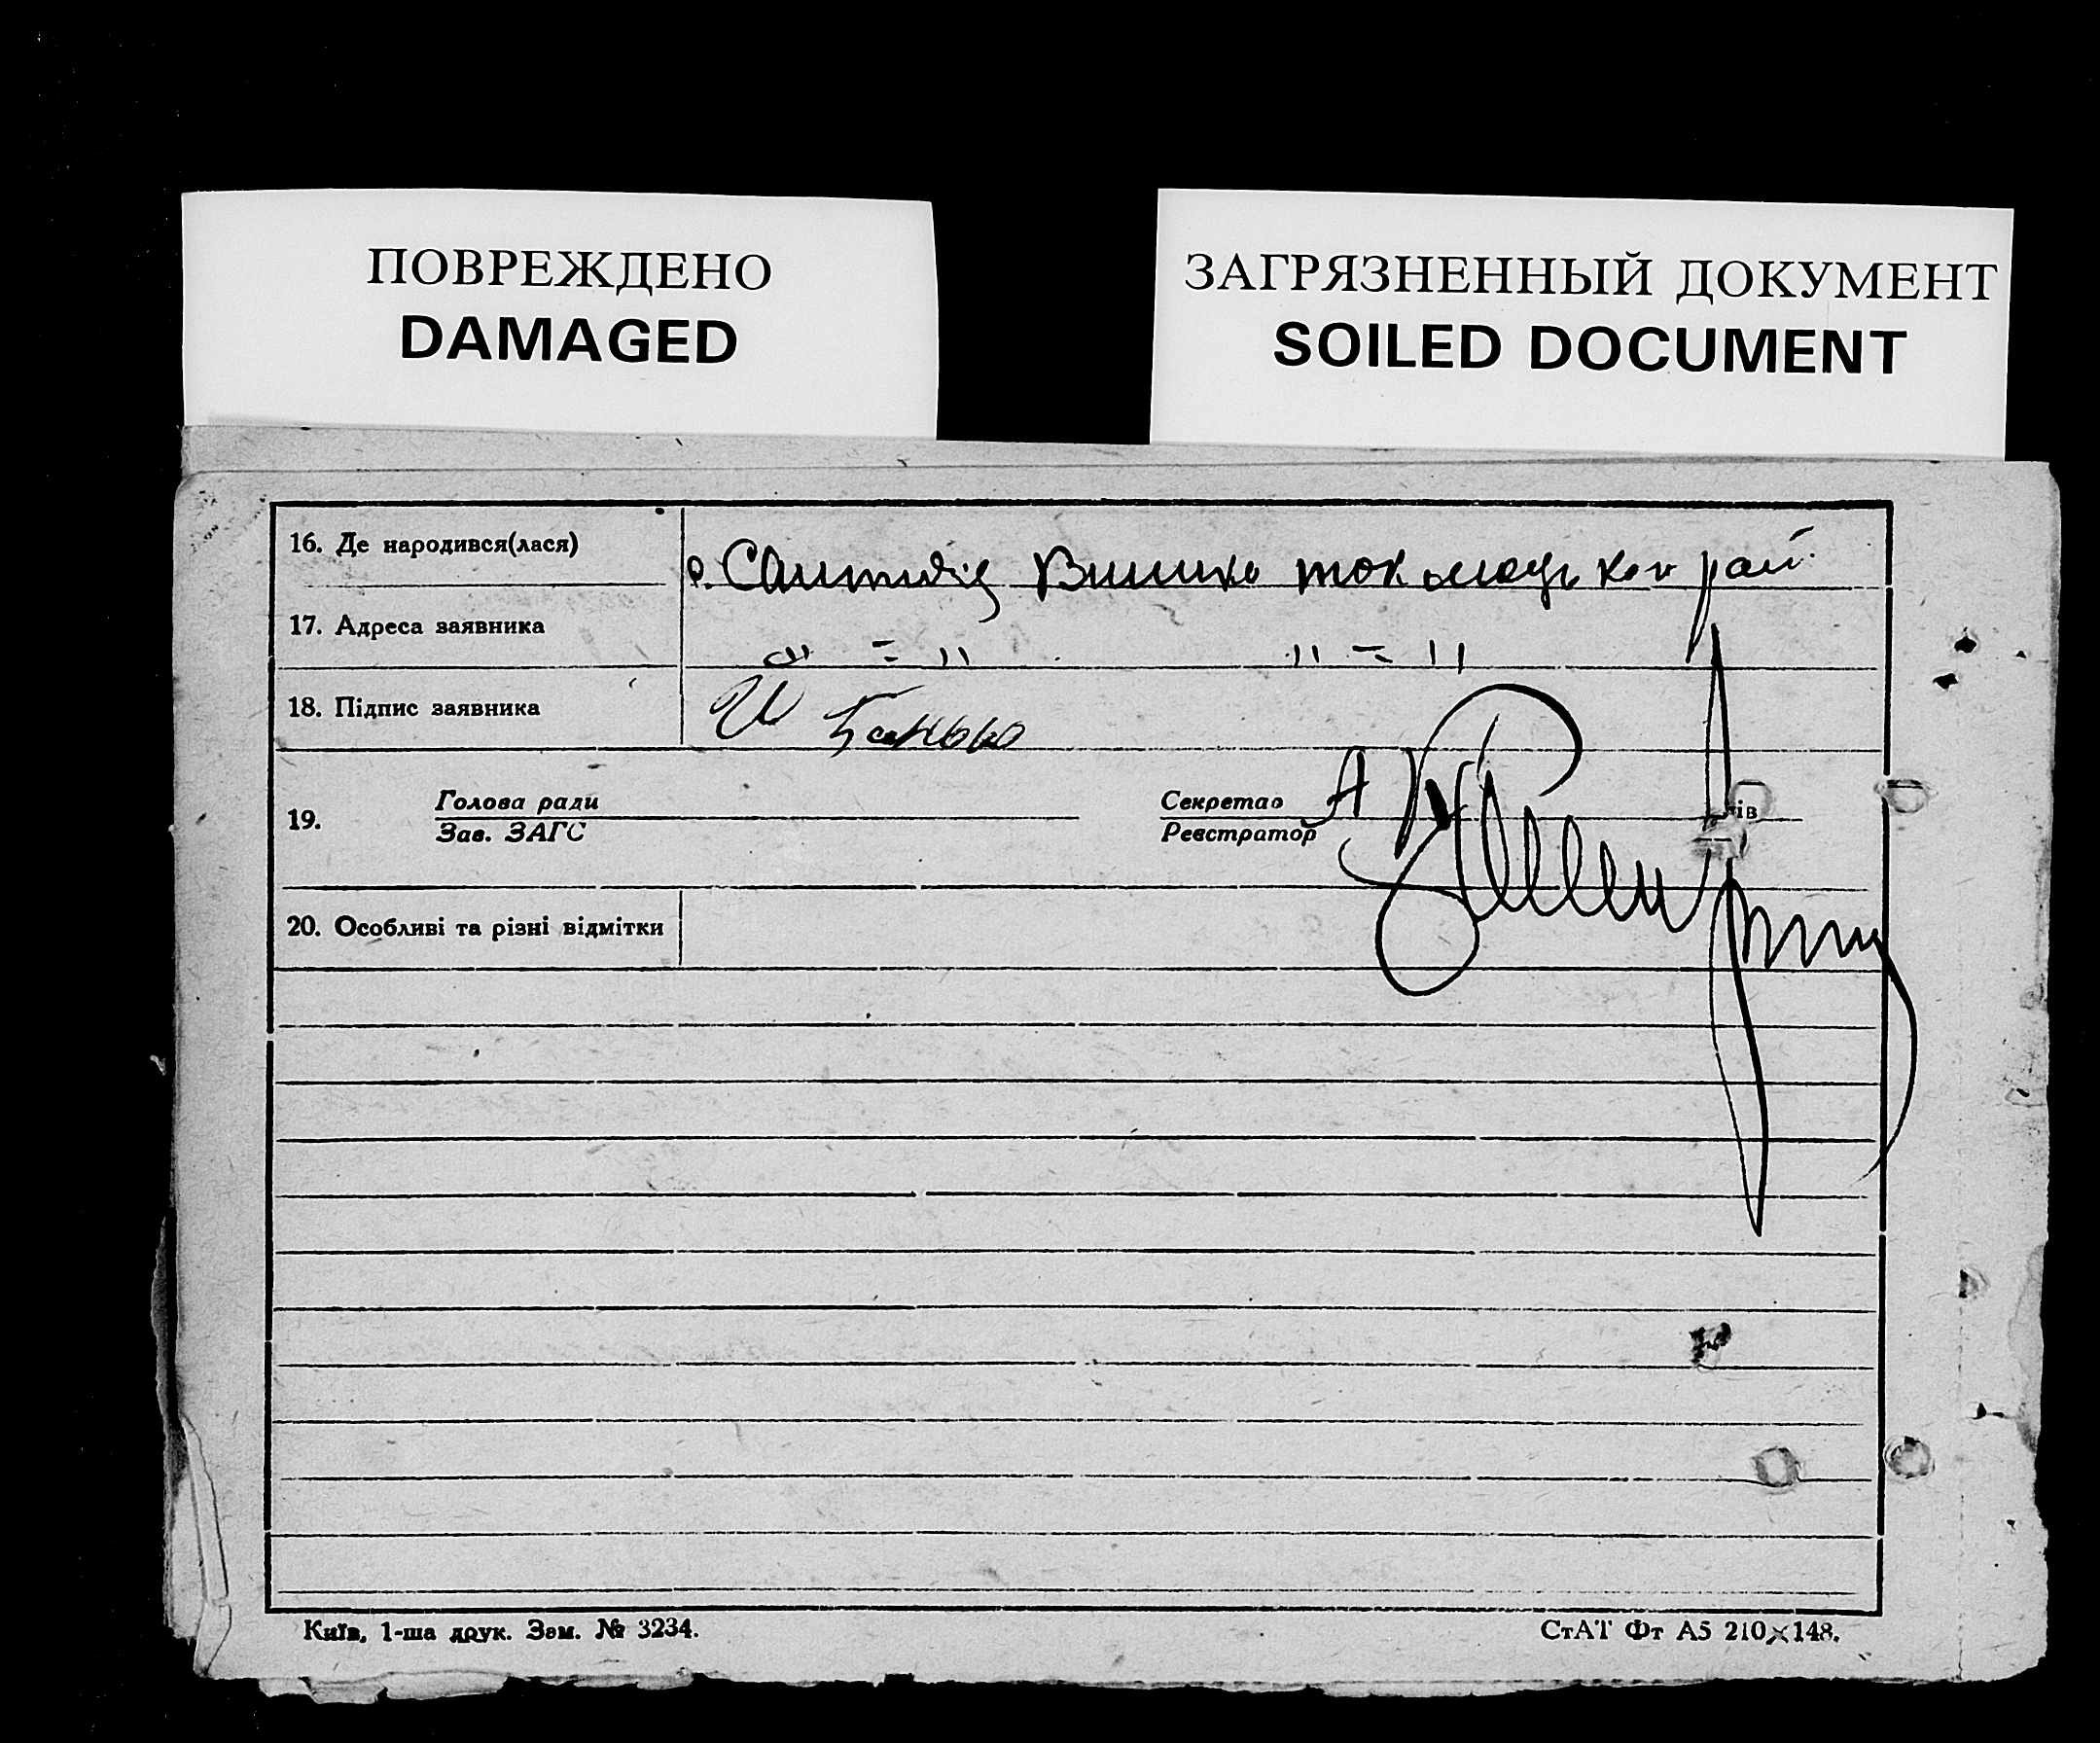 ПОВРЕЖДЕНО
DAMAGED
ЗАГРЯЗНЕННЫЙ ДОКУМЕНТ
SOILED DOCUMENT
16. Де народився(лася)
рай
17. Адреса заявника
" = " " = "
18. Підпис заявника
19. Голова ради Секретар
Зав. ЗАГС Реєстратор
20. Особливі та різні відмітки
Київ, 1-ша друк. Зам. № 3234. СтАТ Фт А5 210×148.